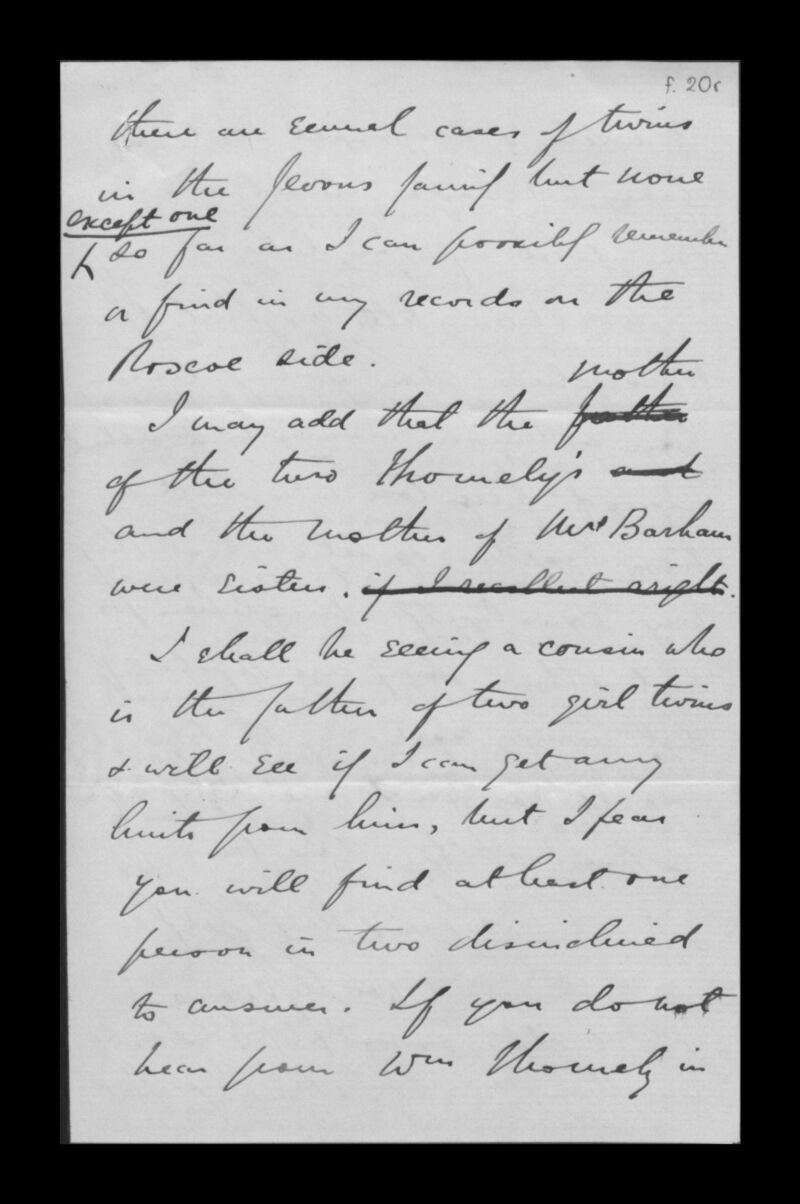 f. 20r
there are several cases of twins
in the Jevons family but none
except one
so far as I can possibly remember
or find in my records on the
Roscoe side.
mother
I may add that the father
of the two Thornely's and
and the mother of Mrs Barham
were sisters. if I recollect aright.
I shall be seeing a cousin who
is the father of two girl twins
& will see if I can get any
hints from him, but I fear
you will find at least one
person in two disinclined
to answer. If you do not
hear from Wm Thornely in